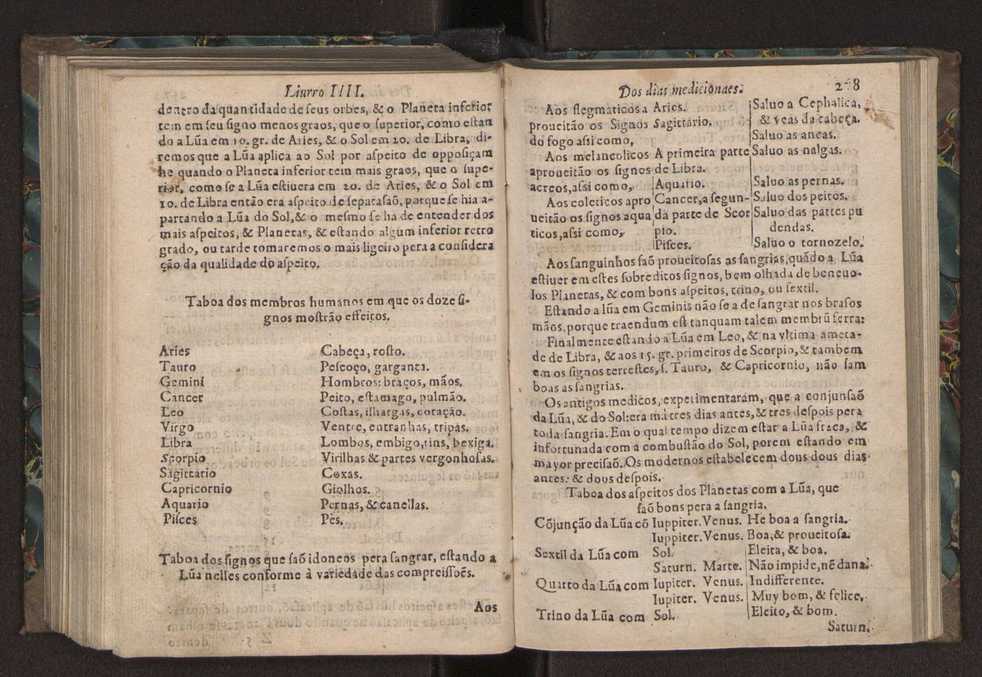 Liurro IIII.
dentro da quantidade de seus orbes, & o Planeta inferior
tem em seu signo menos graos, que o superior, como estan
do a Lũa em 10. gr. de Aries, & o Sol em 20. de Libra, di-
remos que a Lũa aplica ao Sol por aspeito de opposiçam
he quando o Planeta inferior tem mais graos, que o supe-
rior, como se a Lũa estiuera em 20. de Aries, & o Sol em
10. de Libra então era aspeito de separasaõ, porque se hia a-
partando a Lũa do Sol, & o mesmo se ha de entender dos
mais aspeitos, & Planetas, & estando algum inferior retro
grado, ou tarde tomaremos o mais ligeiro pera a considera
ção da qualidade do aspeito.
Taboa dos membros humanos em que os doze si-
gnos mostrão effeitos.
Aries Cabeça, rosto.
Tauro Pescoço, garganta.
Gemini Hombros: braços, mãos.
Cancer Peito, estamago, pulmão.
Leo Costas, ilhargas, coração.
Virgo Ventre, entranhas, tripas.
Libra Lombos, embigo, rins, bexiga.
Scorpio Virilhas & partes vergonhosas.
Sagittario Coxas.
Capricornio Giolhos.
Aquario Pernas, & canellas.
Pisces Pés.
Taboa dos signos que saõ idoneos pera sangrar, estando a
Lũa nelles conforme à variedade das compreissoẽs.
Aos
Dos dias medicionaes. 278
Aos flegmaticos a Aries. Saluo a Cephalica,
proueitão os Signos Sagittario. & veas da cabeça.
do fogo assi como, Saluo as ancas.
Aos melancolicos A primeira parte Saluo as nalgas.
aproueitão os signos de Libra.
aereos, assi como, Aquario. Saluo as pernas.
Aos colericos apro Cancer, a segun- Saluo dos peitos.
ueitão os signos aqua da parte de Scor Saluo das partes pu
ticos, assi como, pio. dendas.
Pisces. Saluo o tornozelo.
Aos sanguinhos saõ proueitosas as sangrias, quãdo a Lũa
estiuer em estes sobreditos signos, bem olhada de beneuo-
los Planetas, & com bons aspeitos, trino, ou sextil.
Estando a lũa em Geminis não se a de sangrar nos brasos
mãos, porque traendum est tanquam talem membrũ ferra:
Finalmente estando a Lũa em Leo, & na vltima ameta-
de de Libra, & aos 15. gr. primeiros de Scorpio, & tambem
em os signos terrestes, s. Tauro, & Capricornio, não sam
boas as sangrias.
Os antigos medicos, experimentaram, que a conjunsaõ
da Lũa, & do Sol: era má tres dias antes, & tres despois pera
toda sangria. Em o qual tempo dizem estar a Lũa fraca, &
infortunada com a combustão do Sol, porem estando em
mayor precisaõ. Os modernos estabelecem dous dous dias
antes: & dous despois.
Taboa dos aspeitos dos Planetas com a Lũa, que
saõ bons pera a sangria.
Cõjunção da Lũa cõ Iuppiter. Venus. He boa a sangria.
Iuppiter. Venus. Boa, & proueitosa.
Sextil da Lũa com Sol. Eleita, & boa.
Saturn. Marte. Não impide, nẽ dana.
Quarto da Lũa com Iupiter. Venus. Indifferente.
Iupiter. Venus. Muy bom, & felice.
Trino da Lũa com Sol. Eleito, & bom.
Saturn.